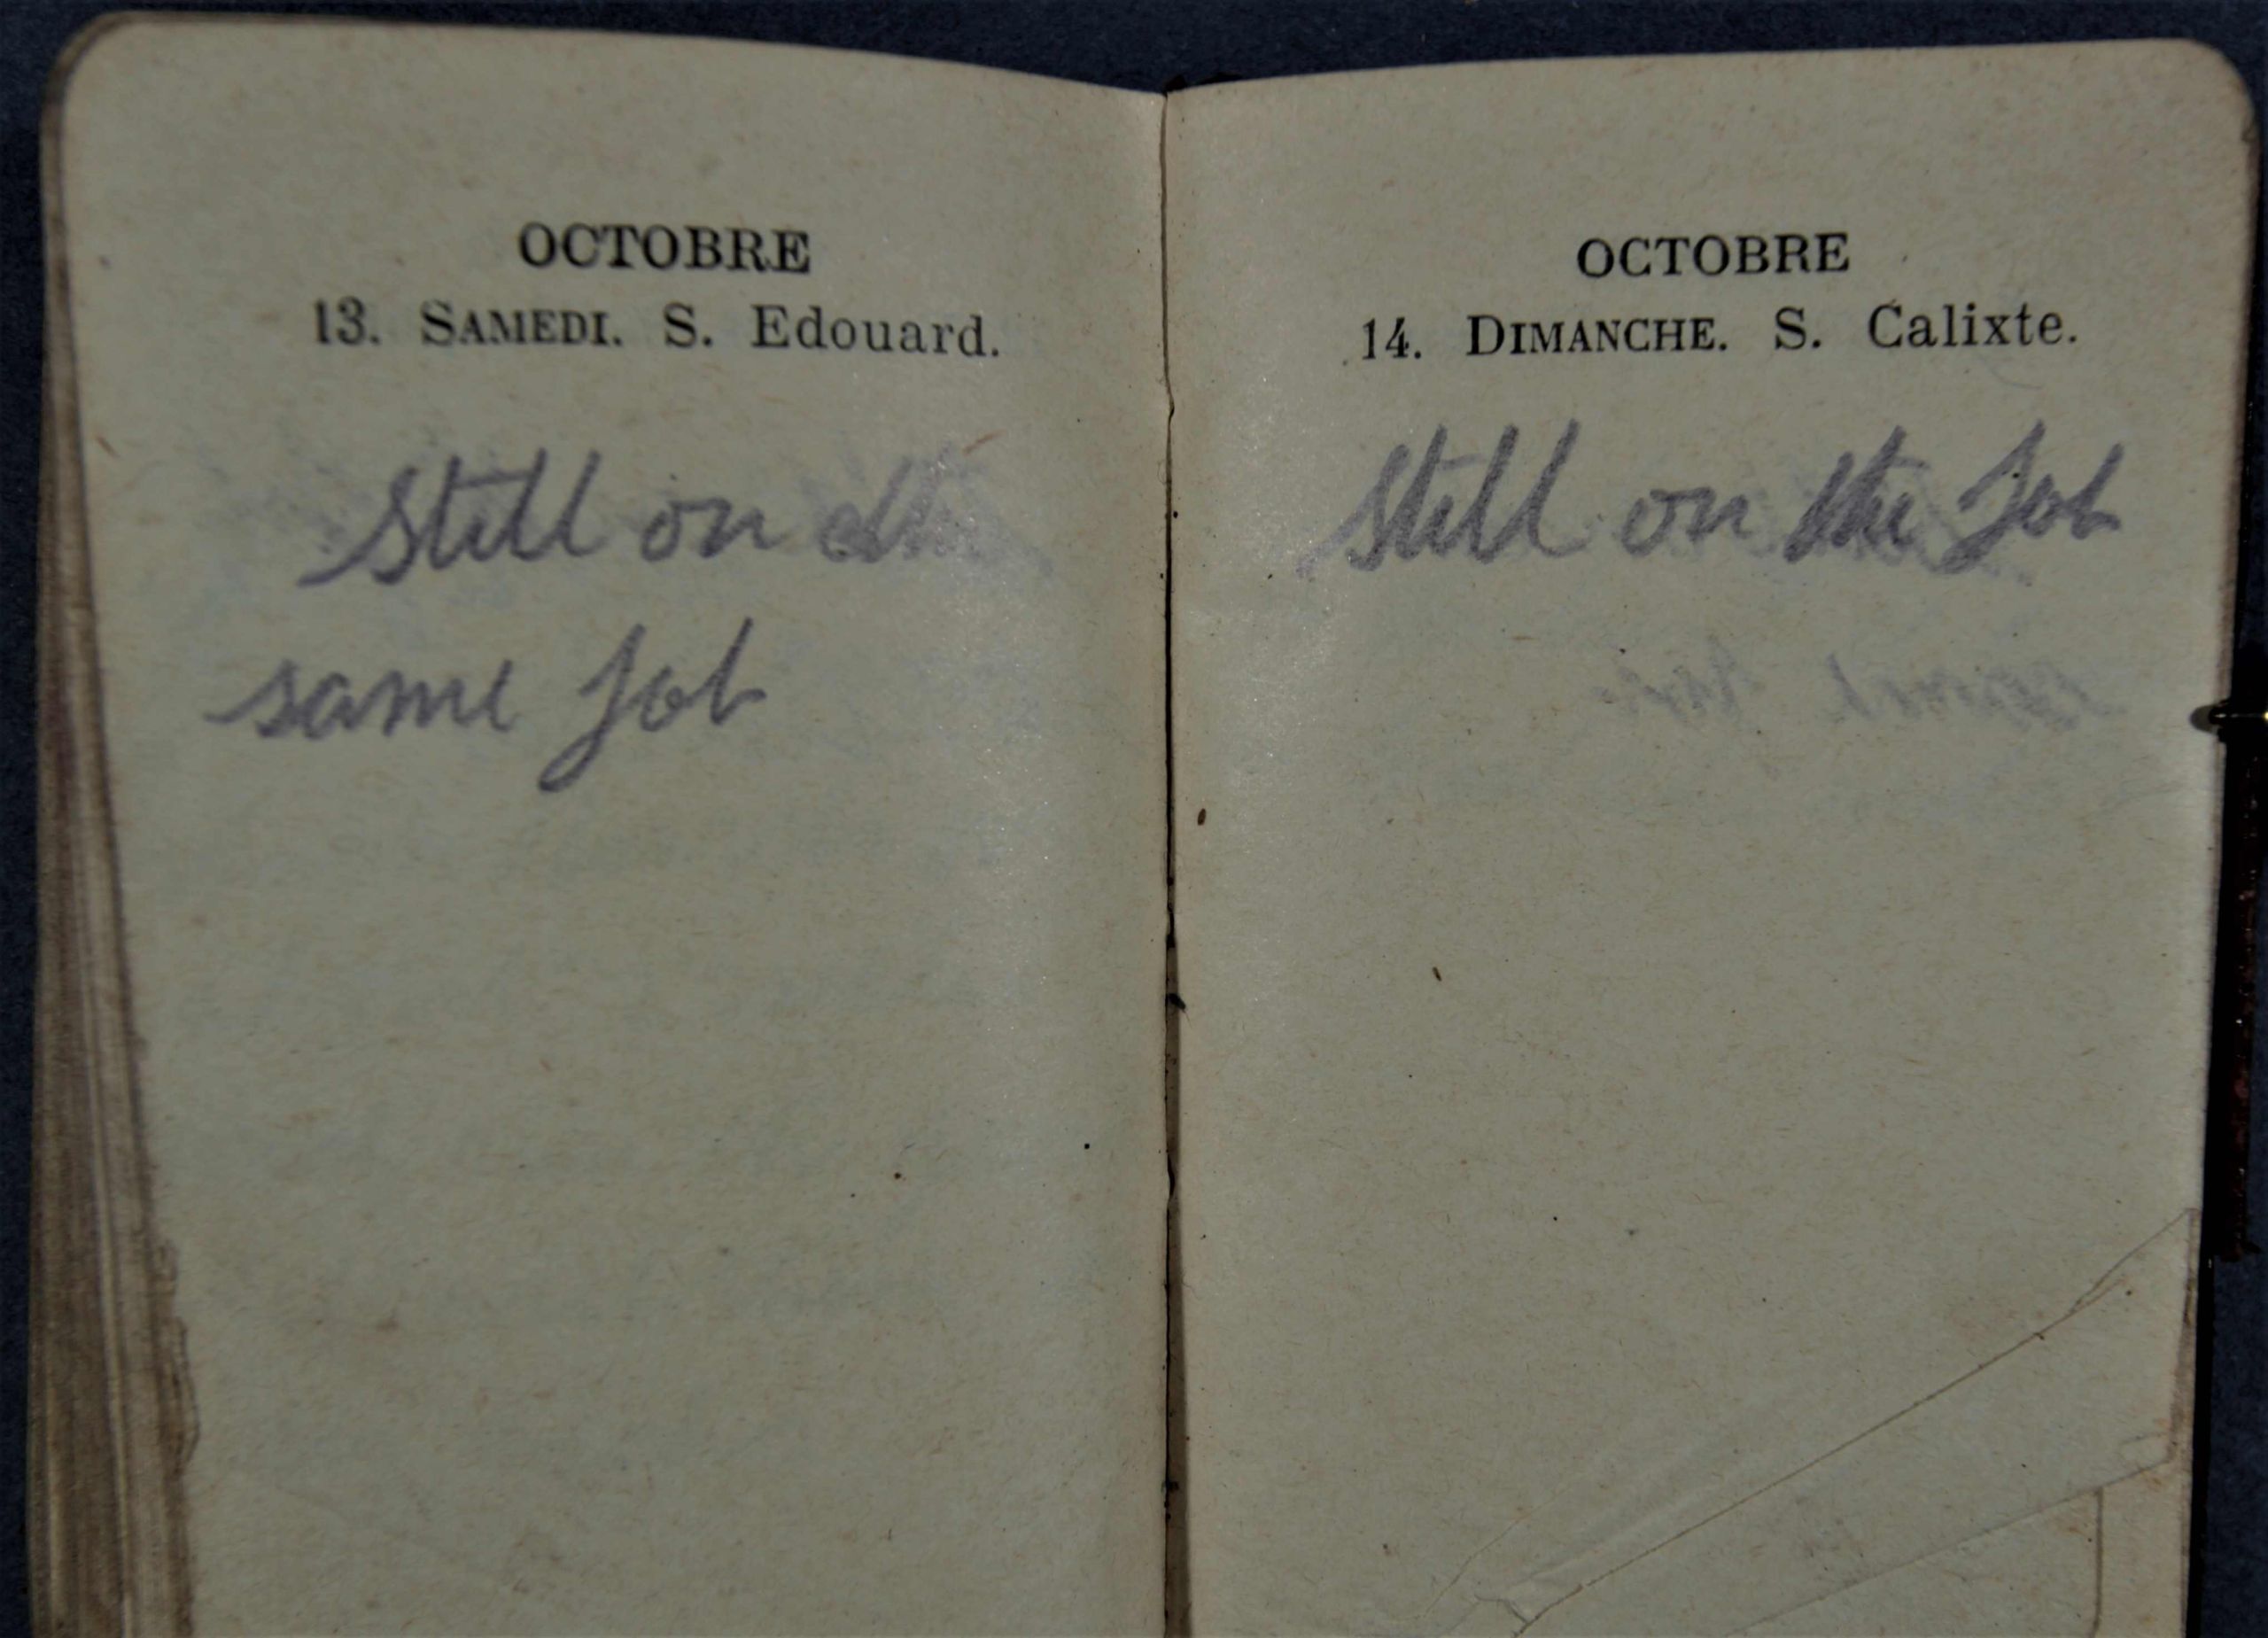 OCTOBRE
13. SAMEDI. S. Edouard.
Still on the
same Job
OCTOBRE
14. DIMANCHE. S. Calixte.
Still on the Job